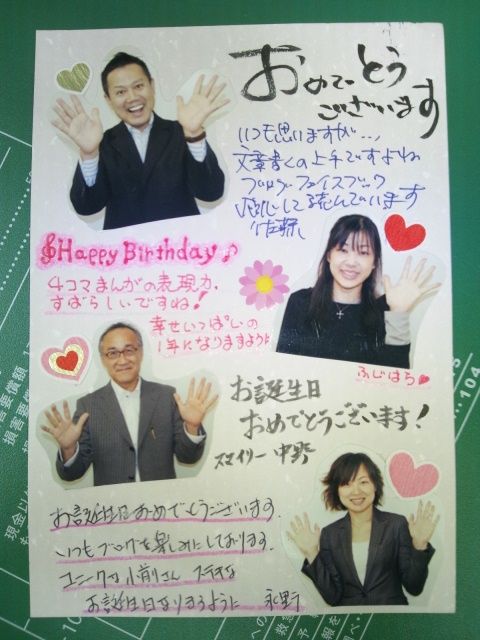 おめでとう
ございます
いつも思いますが…、
文章書くの上手ですよね
ブログ、フェイスブック
感心して読んでいます
佐藤
Happy Birthday♪
4コマまんがの表現力、
すばらしいですね!
幸せいっぱいの
1年になりますように
ふじはら
お誕生日
おめでとうございます!
スマイリー中野
お誕生日おめでとうございます。
いつもブログを楽しみにしております。
ユニークな小前さん ステキな
お誕生日なりますように 永野
104
損害要償額
現金以